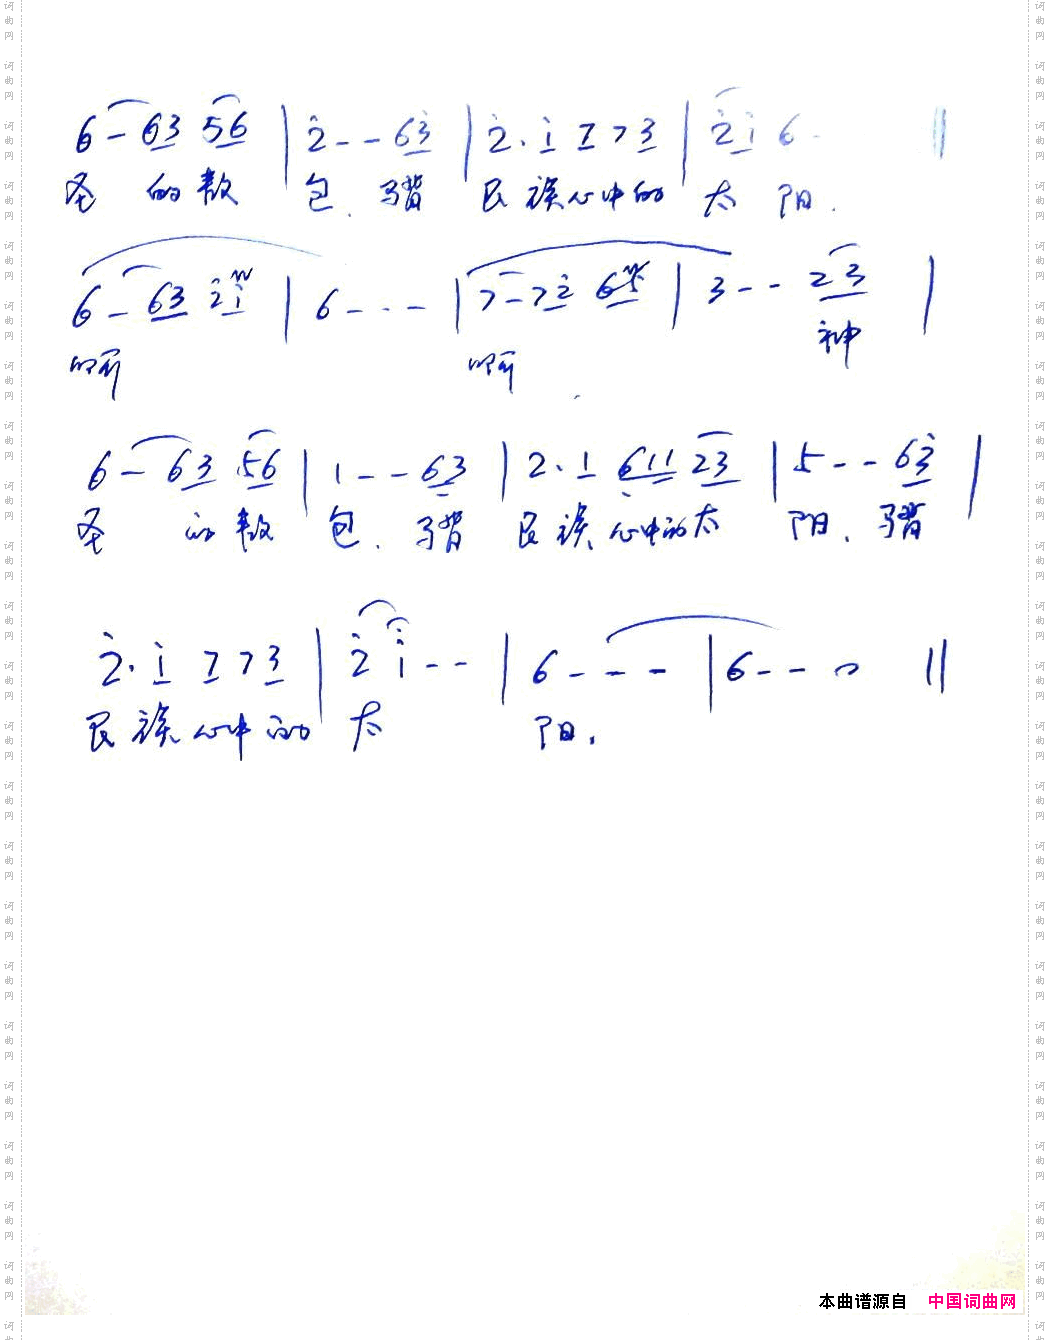 6 - 63 56 | 2̇ - - 63̇ | 2̇· 1̇ 7 7 3 | 2̇1̇ 6 - ‖
圣 的敖 包. 民族心中的 太 阳.
6 - 63 2̇1̇ | 6 - - - | 7 - 72̇ 65 | 3 - - 23 |
啊 啊 神
6 - 63 56 | 1 - - 63 | 2· 1 6̣11 23 | 5 - - 63̇ |
圣 的敖 包. 民族心中的太 阳.
2̇· 1̇ 7 7 3 | 2̇ 1̇ - - | 6 - - - | 6 - - 0 ‖
民族心中的 太 阳.
本曲谱源自 中国词曲网